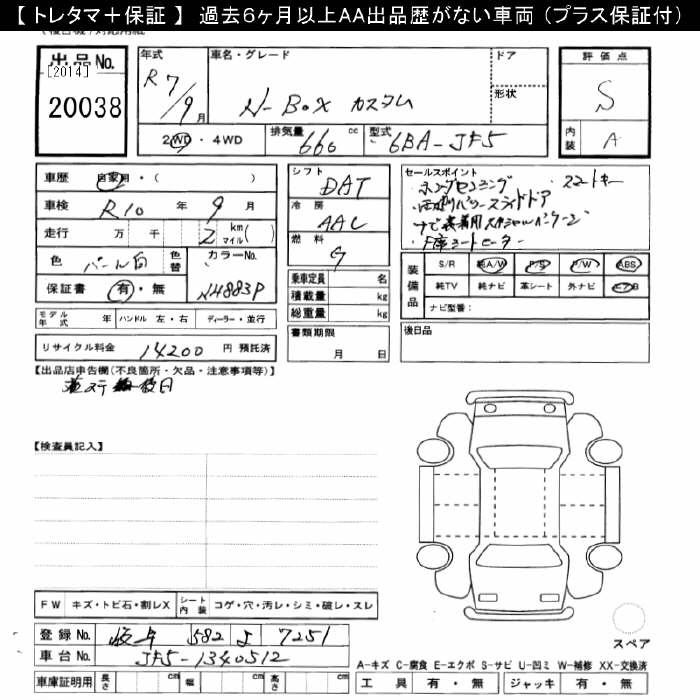 【トレタマ+保証】 過去6ヶ月以上AA出品歴がない車両(プラス保証付)
出品No.
[2014]
20038
年式
R 7/9 月
車名・グレード
N-Box カスタム
ドア
形状
評価点
S
内装
A
2WD・4WD
排気量 660 cc
型式 6BA-JF5
車歴 自家用・( )
車検 R10 年 9 月
走行 万 千 2 km マイル( )
色 パール白 色替
カラーNo. NH883P
保証書 有・無
モデル年式 年 ハンドル 左・右 ディーラー・並行
リサイクル料金 14200 円 預託済
シフト DAT
冷房 AAC
燃料 G
乗車定員 名
積載量 kg
総重量 kg
書類期限
月 日
セールスポイント
・ホンダセンシング ・スマートキー
・両側パワースライドドア
・ナビ装着用スペシャルパッケージ
・F席シートヒーター
装備品
S/R 純A/W P/S P/W ABS
純TV 純ナビ 革シート 外ナビ エアB
ナビ型番:
後日品
【出品店申告欄(不良箇所・欠品・注意事項等)】
革ステ 後日
【検査員記入】
FW キズ・トビ石・割レX シート内装 コゲ・穴・汚レ・シミ・破レ・スレ
登録No. 岐阜 582 よ 7251
車台No. JF5-1340512
車庫証明用 長さ cm 幅 cm 高さ cm
スペア
A-キズ C-腐食 E-エクボ S-サビ U-凹ミ W-補修 XX-交換済
工具 有・無 ジャッキ 有・無